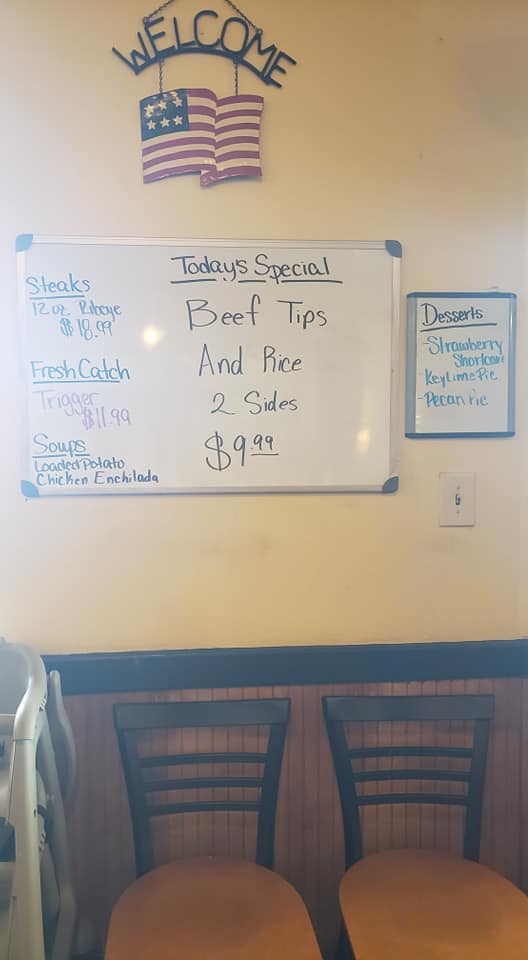 WELCOME
Steaks
12 oz Ribeye
$18.99
Fresh Catch
Trigger
$11.99
Soups
Loaded Potato
Chicken Enchilada
Today's Special
Beef Tips
And Rice
2 Sides
$9.99
Desserts
-Strawberry
Shortcake
-Key Lime Pie
-Pecan Pie